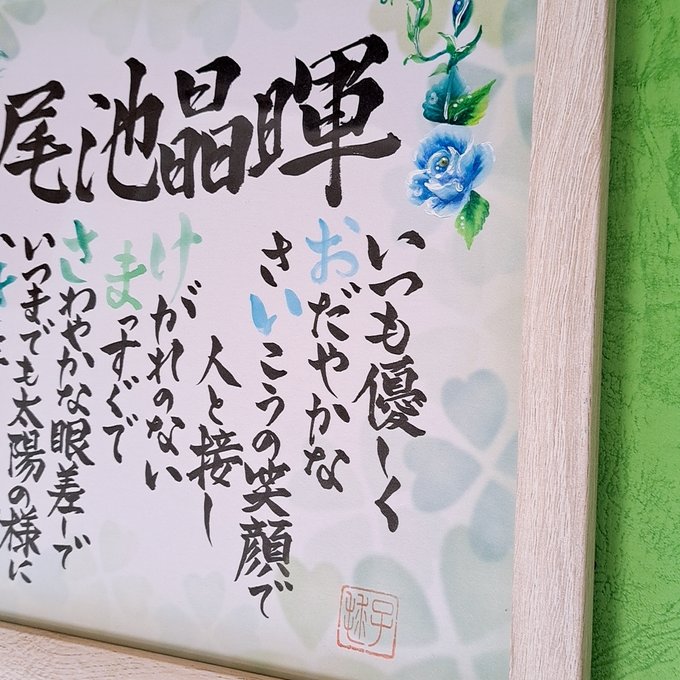 尾池晶暉
いつも優しく
おだやかな
さいこうの笑顔で
人と接し
けがれのない
まっすぐで
さわやかな眼差しで
いつまでも太陽の様に